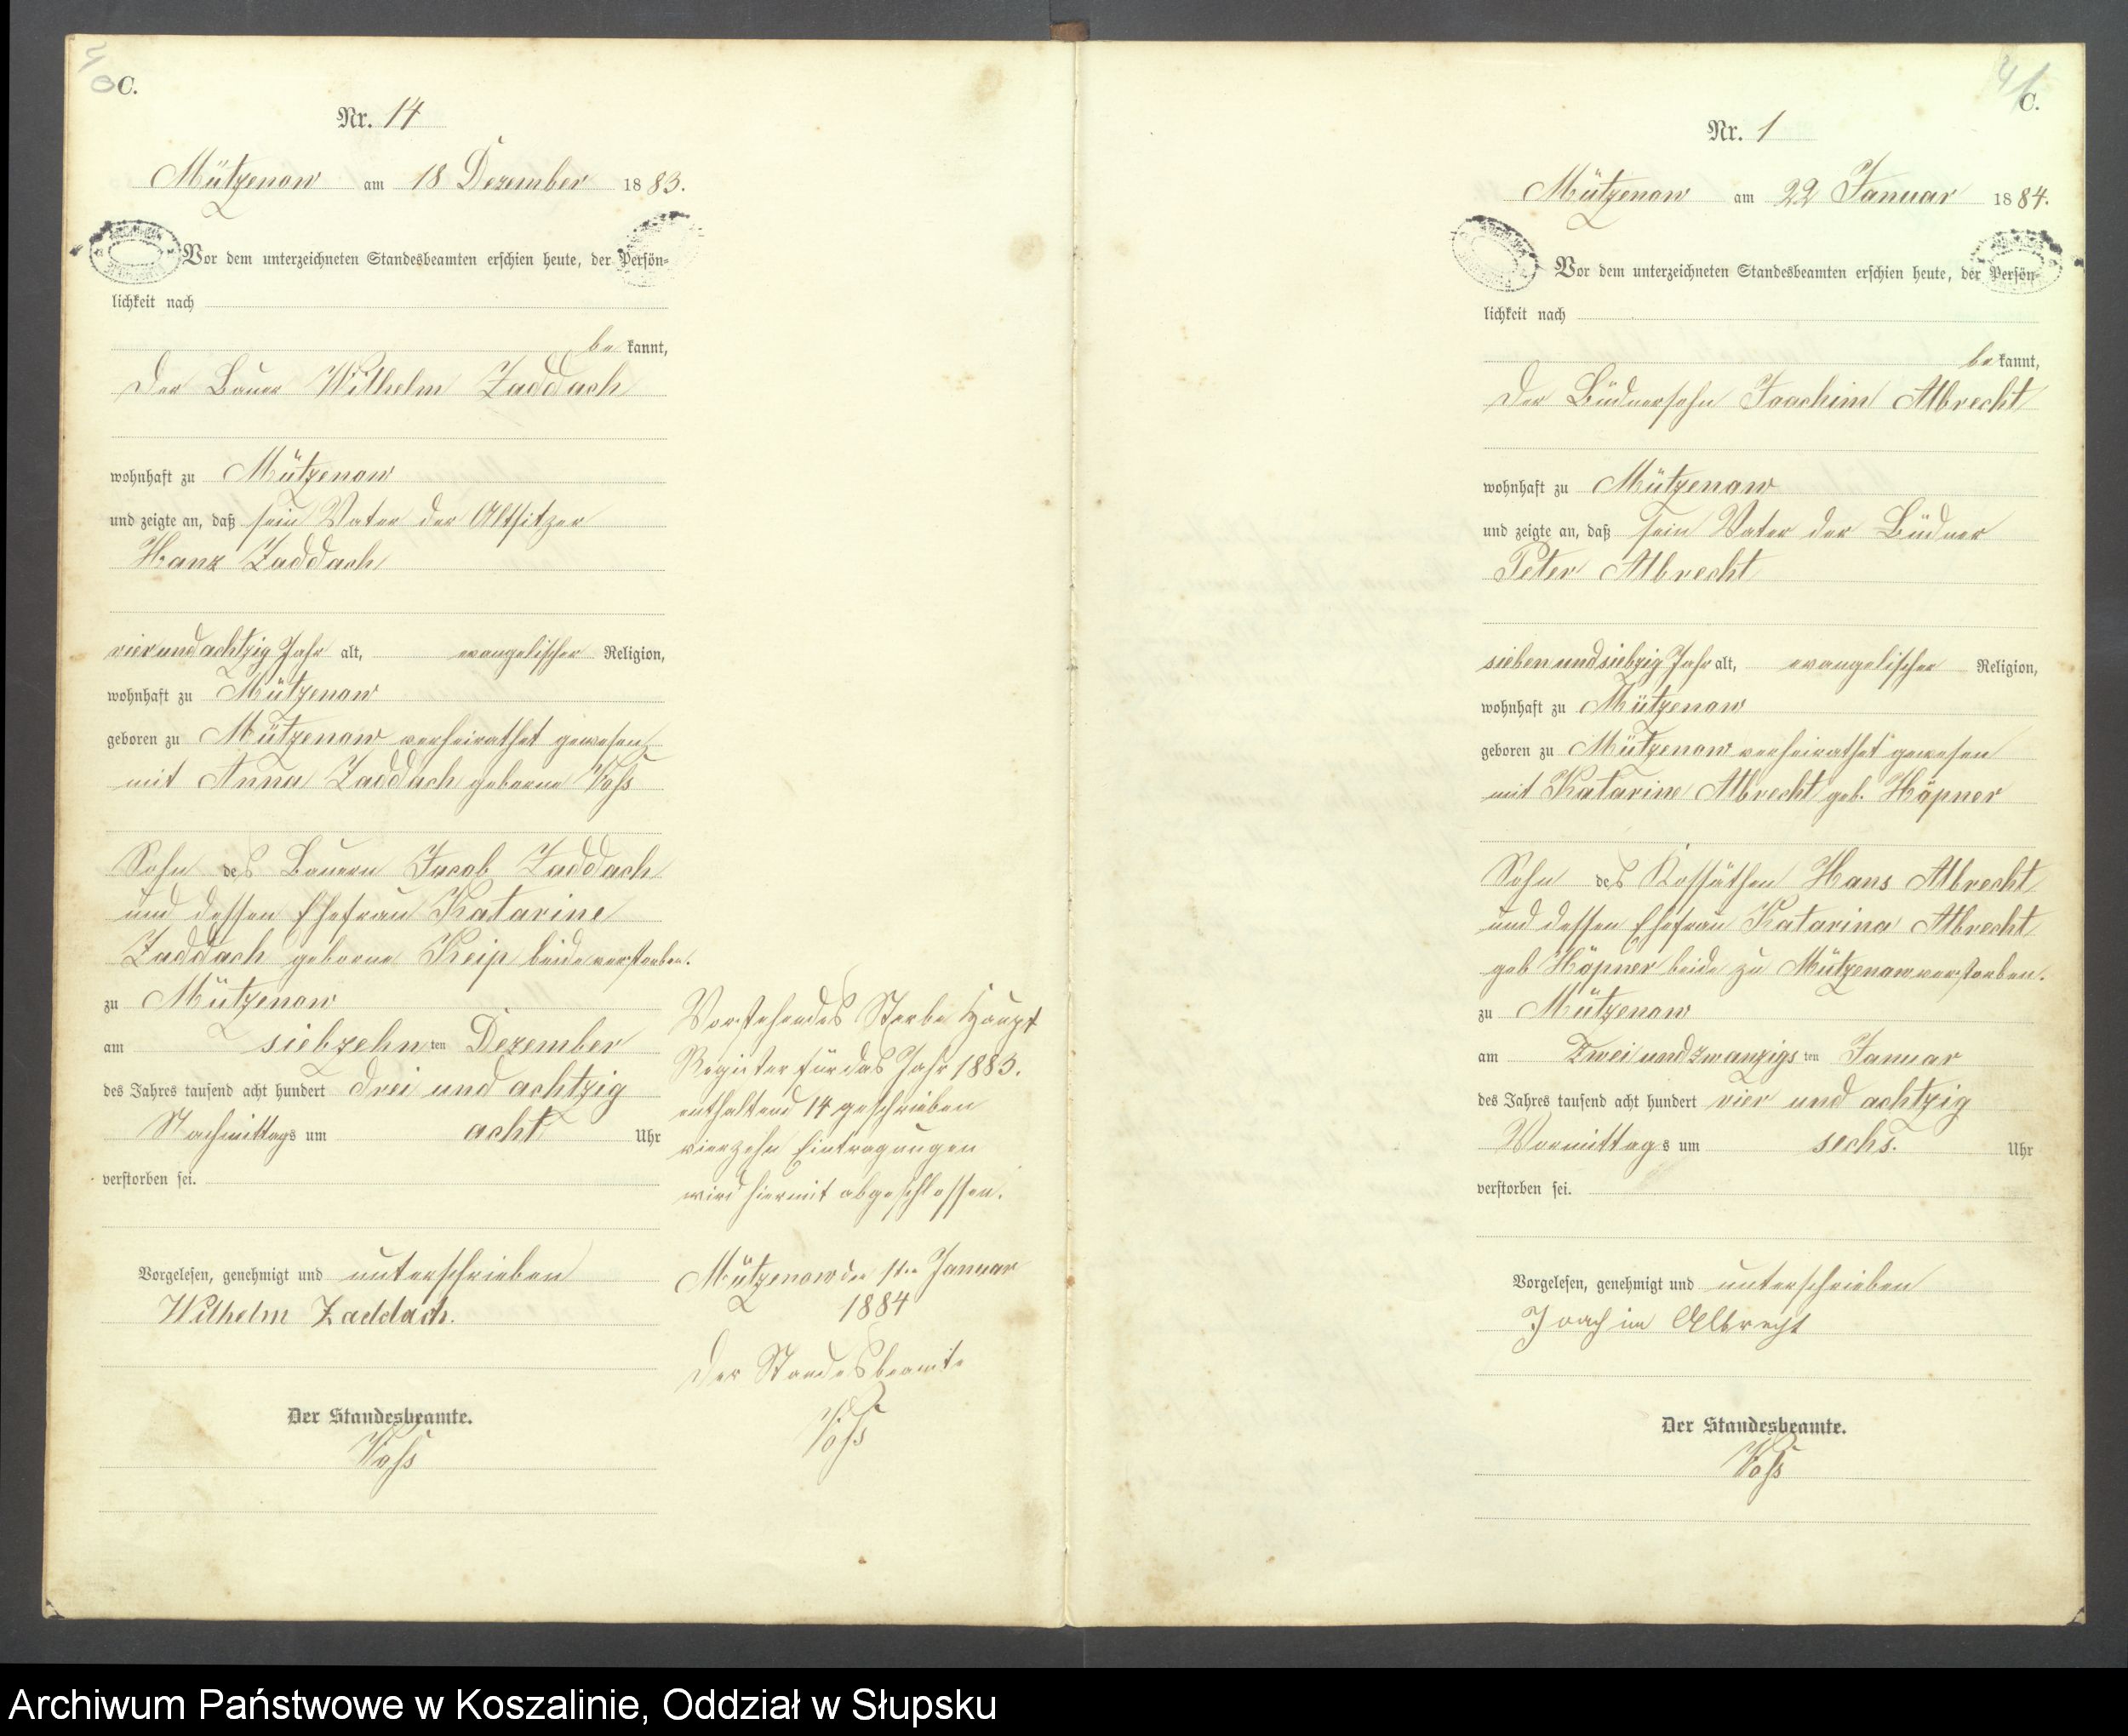 C.
Nr. 14
Mützenow am 18 Dezember 1883.
Vor dem unterzeichneten Standesbeamten erschien heute, der Persön-
lichkeit nach
be kannt,
der Bauer Wilhelm Zaddach
wohnhaft zu Mützenow
und zeigte an, daß sein Vater der Altsitzer
Hans Zaddach
vierundachtzig Jahr alt, evangelischer Religion,
wohnhaft zu Mützenow
geboren zu Mützenow verheirathet gewesen
mit Anna Zaddach geborne Voss
Sohn des Bauern Jacob Zaddach
und dessen Ehefrau Katarine
Zaddach geborne Keip beide verstorben.
zu Mützenow
am siebzehn ten Dezember
des Jahres tausend acht hundert drei und achtzig
Nachmittags um acht Uhr
verstorben sei.
Vorgelesen, genehmigt und unterschrieben
Wilhelm Zaddach.
Der Standesbeamte.
Voss
Vorstehendes Sterbe Haupt
Register für das Jahr 1883.
enthaltend 14 geschrieben
vierzehn Eintragungen
wird hiermit abgeschlossen.
Mützenow den 1ten Januar
1884
Der Standesbeamte
Voss
41
C.
Nr. 1
Mützenow am 22 Januar 1884.
Vor dem unterzeichneten Standesbeamten erschien heute, der Persön-
lichkeit nach
be kannt,
der Büdnersohn Joachim Albrecht
wohnhaft zu Mützenow
und zeigte an, daß sein Vater der Büdner
Peter Albrecht
siebenundsiebzig Jahr alt, evangelischer Religion,
wohnhaft zu Mützenow
geboren zu Mützenow verheirathet gewesen
mit Katarine Albrecht geb. Höpner
Sohn des Kossäthen Hans Albrecht
und dessen Ehefrau Katarina Albrecht
geb Höpner beide zu Mützenow verstorben.
zu Mützenow
am Zwei und zwanzigs ten Januar
des Jahres tausend acht hundert vier und achtzig
Vormittags um sechs. Uhr
verstorben sei.
Vorgelesen, genehmigt und unterschrieben
Joachim Albrecht
Der Standesbeamte.
Voss
Archiwum Państwowe w Koszalinie, Oddział w Słupsku